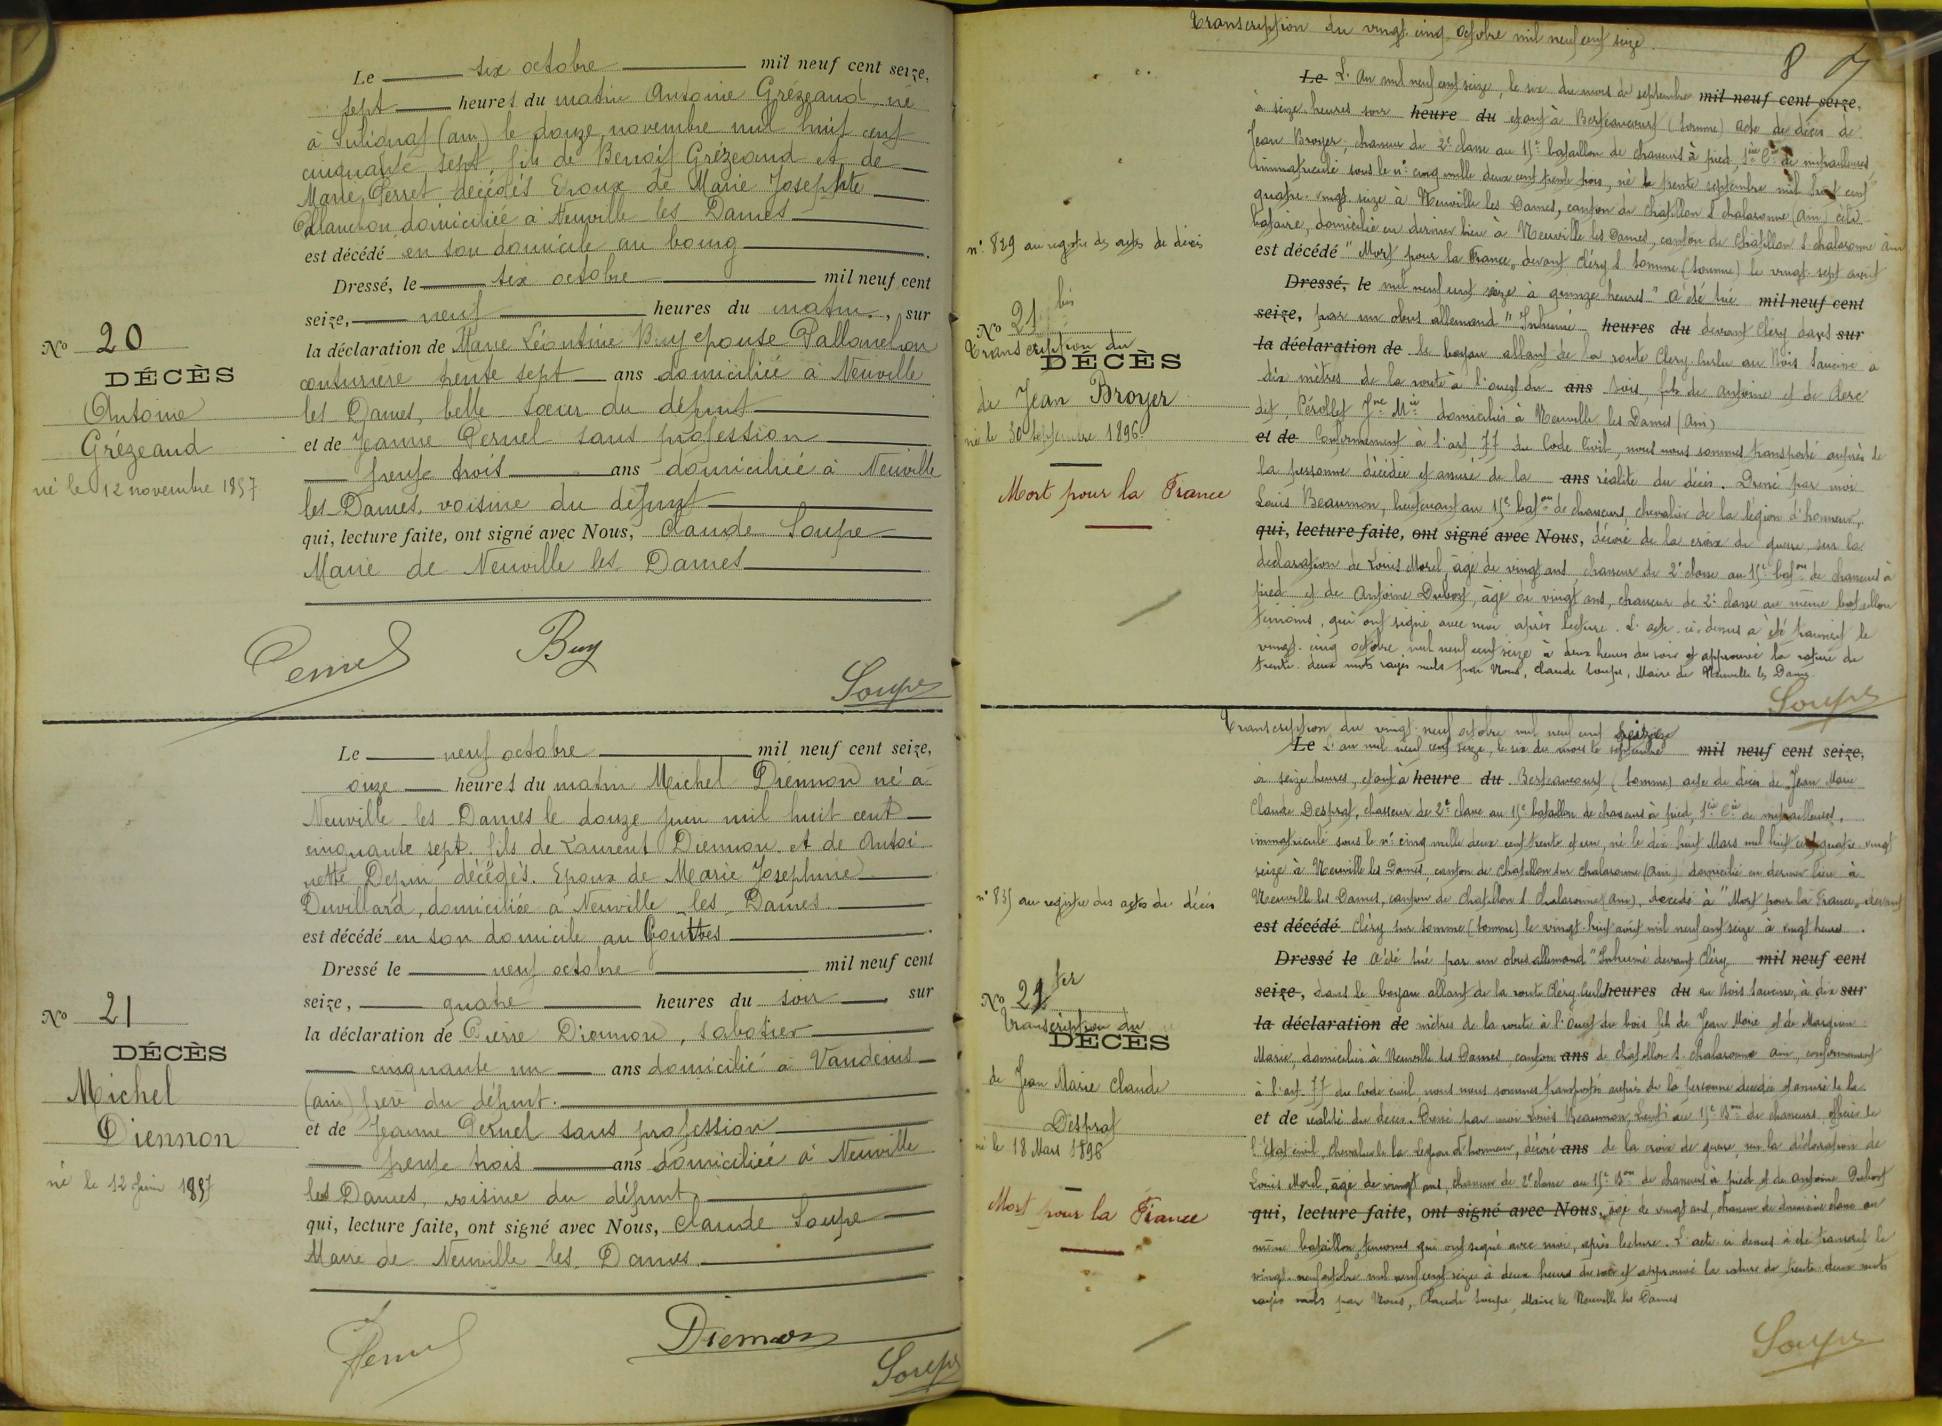 Le six octobre mil neuf cent seize,
sept heures du matin Antoine Grézeaud né
à Sulignat (ain) le douze novembre mil huit cent
cinquante sept, fils de Benoit Grézeaud et de
Marie Perret décédés Epoux de Marie Josephte
Pallanchon, domiciliée à Neuville les Dames
est décédé en son domicile au bourg
Dressé, le six octobre mil neuf cent
seize, neuf heures du matin, sur
la déclaration de Marie Léontine Buy epouse Pallanchon
couturière trente sept ans domiciliée à Neuville
les Dames, belle soeur du défunt
et de Jeanne Pernel sans profession
trente trois ans domiciliée à Neuville
les Dames, voisine du défunt
qui, lecture faite, ont signé avec Nous, Claude Soupe
Maire de Neuville les Dames
Pernel Buy
Soupe
No 20
DÉCÈS
Antoine
Grézeaud
né le 12 novembre 1857
Le neuf octobre mil neuf cent seize,
onze heures du matin Michel Diennon né à
Neuville les Dames le douze juin mil huit cent
cinquante sept. fils de Laurent Diennon et de Antoi
nette Depun, décédés. Epoux de Marie Josephine
Duvillard, domiciliée à Neuville les Dames
est décédé en son domicile au Gouttes
Dressé le neuf octobre mil neuf cent
seize, quatre heures du soir, sur
la déclaration de Pierre Diennon, sabotier
cinquante un ans domicilié à Vandeins
(ain) frère du défunt.
et de Jeanne Pernel sans profession
trente trois ans domiciliée à Neuville
les Dames, voisine du défunt
qui, lecture faite, ont signé avec Nous, Claude Soupe
Maire de Neuville les Dames.
Pernel Diennon
Soupe
No 21
DÉCÈS
Michel
Diennon
né le 12 juin 1857
Transcription du vingt cinq octobre mil neuf cent seize.
8
Le L'An mil neuf cent seize, le six du mois de septembre mil neuf cent seize,
à seize heures soir heure du étant à Berteaucourt (Somme) acte de décès de
Jean Broyer, chasseur de 2e classe au 15e bataillon de chasseurs à pied 1ère Cie de mitrailleuses,
immatriculé sous le n° cinq mille deux cent trente trois, né le trente septembre mil huit cent
quatre-vingt-seize à Neuville les Dames, canton de Chatillon S Chalaronne (Ain) céli
bataire, domicilié en dernier lieu à Neuville les Dames, canton de Chatillon S. Chalaronne Ain
est décédé "Mort pour la France" devant Cléry S. Somme (Somme) le vingt-sept août
Dressé, le mil neuf cent seize à quinze heures" a été tué mil neuf cent
seize, par un obus allemand" Inhumé heures du devant Cléry dans sur
la déclaration de le boyau allant de la route Cléry-Curlu au Bois Saucine à
dix mètres de la route à l'ouest du ans bois, fils de Antoine et de Clerc
dit, Pérollet Jne Mie domiciliés à Neuville les Dames (Ain)
et de Conformément à l'art 77 du Code Civil, nous nous sommes transporté auprès de
la personne décédée et assuré de la ans réalité du décès. Dressé par moi
Louis Beaumon, lieutenant au 15e baton de chasseurs, chevalier de la légion d'honneur,
qui, lecture faite, ont signé avec Nous, décoré de la croix de guerre, sur la
déclaration de Louis Morel, âgé de vingt ans, chasseur de 2e classe au 15e baton de chasseurs à
pied et de Antoine Dubost, âgé de vingt ans, chasseur de 2e classe au même bataillon
témoins, qui ont signé avec moi après lecture. L'acte ci-dessus a été transcrit le
vingt-cinq octobre mil neuf cent seize à deux heures du soir et approuvé la rature de
trente-deux mots rayés nuls par Nous, Claude Soupe, Maire de Neuville les Dames.
Soupe
n° 829 au registre des actes de décès
No 21 bis
Transcription du
DÉCÈS
de Jean Broyer
né le 30 septembre 1896
Mort pour la France
Transcription du vingt-neuf octobre mil neuf cent seize
Le L'an mil neuf cent seize, le six du mois de septembre mil neuf cent seize,
à seize heures, étant à heure du Berteaucourt (Somme) acte de décès de Jean Marie
Claude Desprat, chasseur de 2e classe au 15e bataillon de chasseurs à pied, 1ère Cie de mitrailleuses,
immatriculé sous le n° cinq mille deux cent trente et un, né le dix huit Mars mil huit cent quatre vingt
seize à Neuville les Dames, canton de Chatillon sur Chalaronne (Ain) domicilié en dernier lieu à
Neuville les Dames, canton de Chatillon S. Chalaronne (Ain), décédé à "Mort pour la France" devant
est décédé Cléry sur Somme (Somme) le vingt-huit août mil neuf cent seize à vingt heures.
Dressé le a été tué par un obus allemand" Inhumé devant Cléry mil neuf cent
seize, dans le boyau allant de la route Cléry-Curlu heures du au Bois Saucine, à dix sur
la déclaration de mètres de la route à l'Ouest du bois fils de Jean Marie et de Marguin
Marie, domiciliés à Neuville les Dames canton ans de Chatillon S. Chalaronne Ain, conformément
à l'art 77 du Code civil nous nous sommes transportés auprès de la personne décédée et assuré de la
et de réalité du décès. Dressé par moi Louis Beaumon, Lieutt au 15e Bon de chasseurs, officier de
l'état civil, chevalier de la Légion d'honneur, décoré ans de la croix de guerre sur la déclaration de
Louis Morel, âgé de vingt ans, chasseur de 2e classe au 15e Bon de chasseurs à pied et de Antoine Dubost
qui, lecture faite, ont signé avec Nous, âgé de vingt ans, chasseur de deuxième classe au
même bataillon, témoins qui ont signé avec moi, après lecture. L'acte ci dessus a été transcrit le
vingt-neuf octobre mil neuf cent seize à deux heures du soir et approuvé la rature de trente-deux mots
rayés nuls par Nous, Claude Soupe, Maire de Neuville les Dames
Soupe
n° 835 au registre des actes de décès
No 21 ter
Transcription du
DÉCÈS
de Jean Marie Claude
Desprat
né le 18 Mars 1896
Mort pour la France